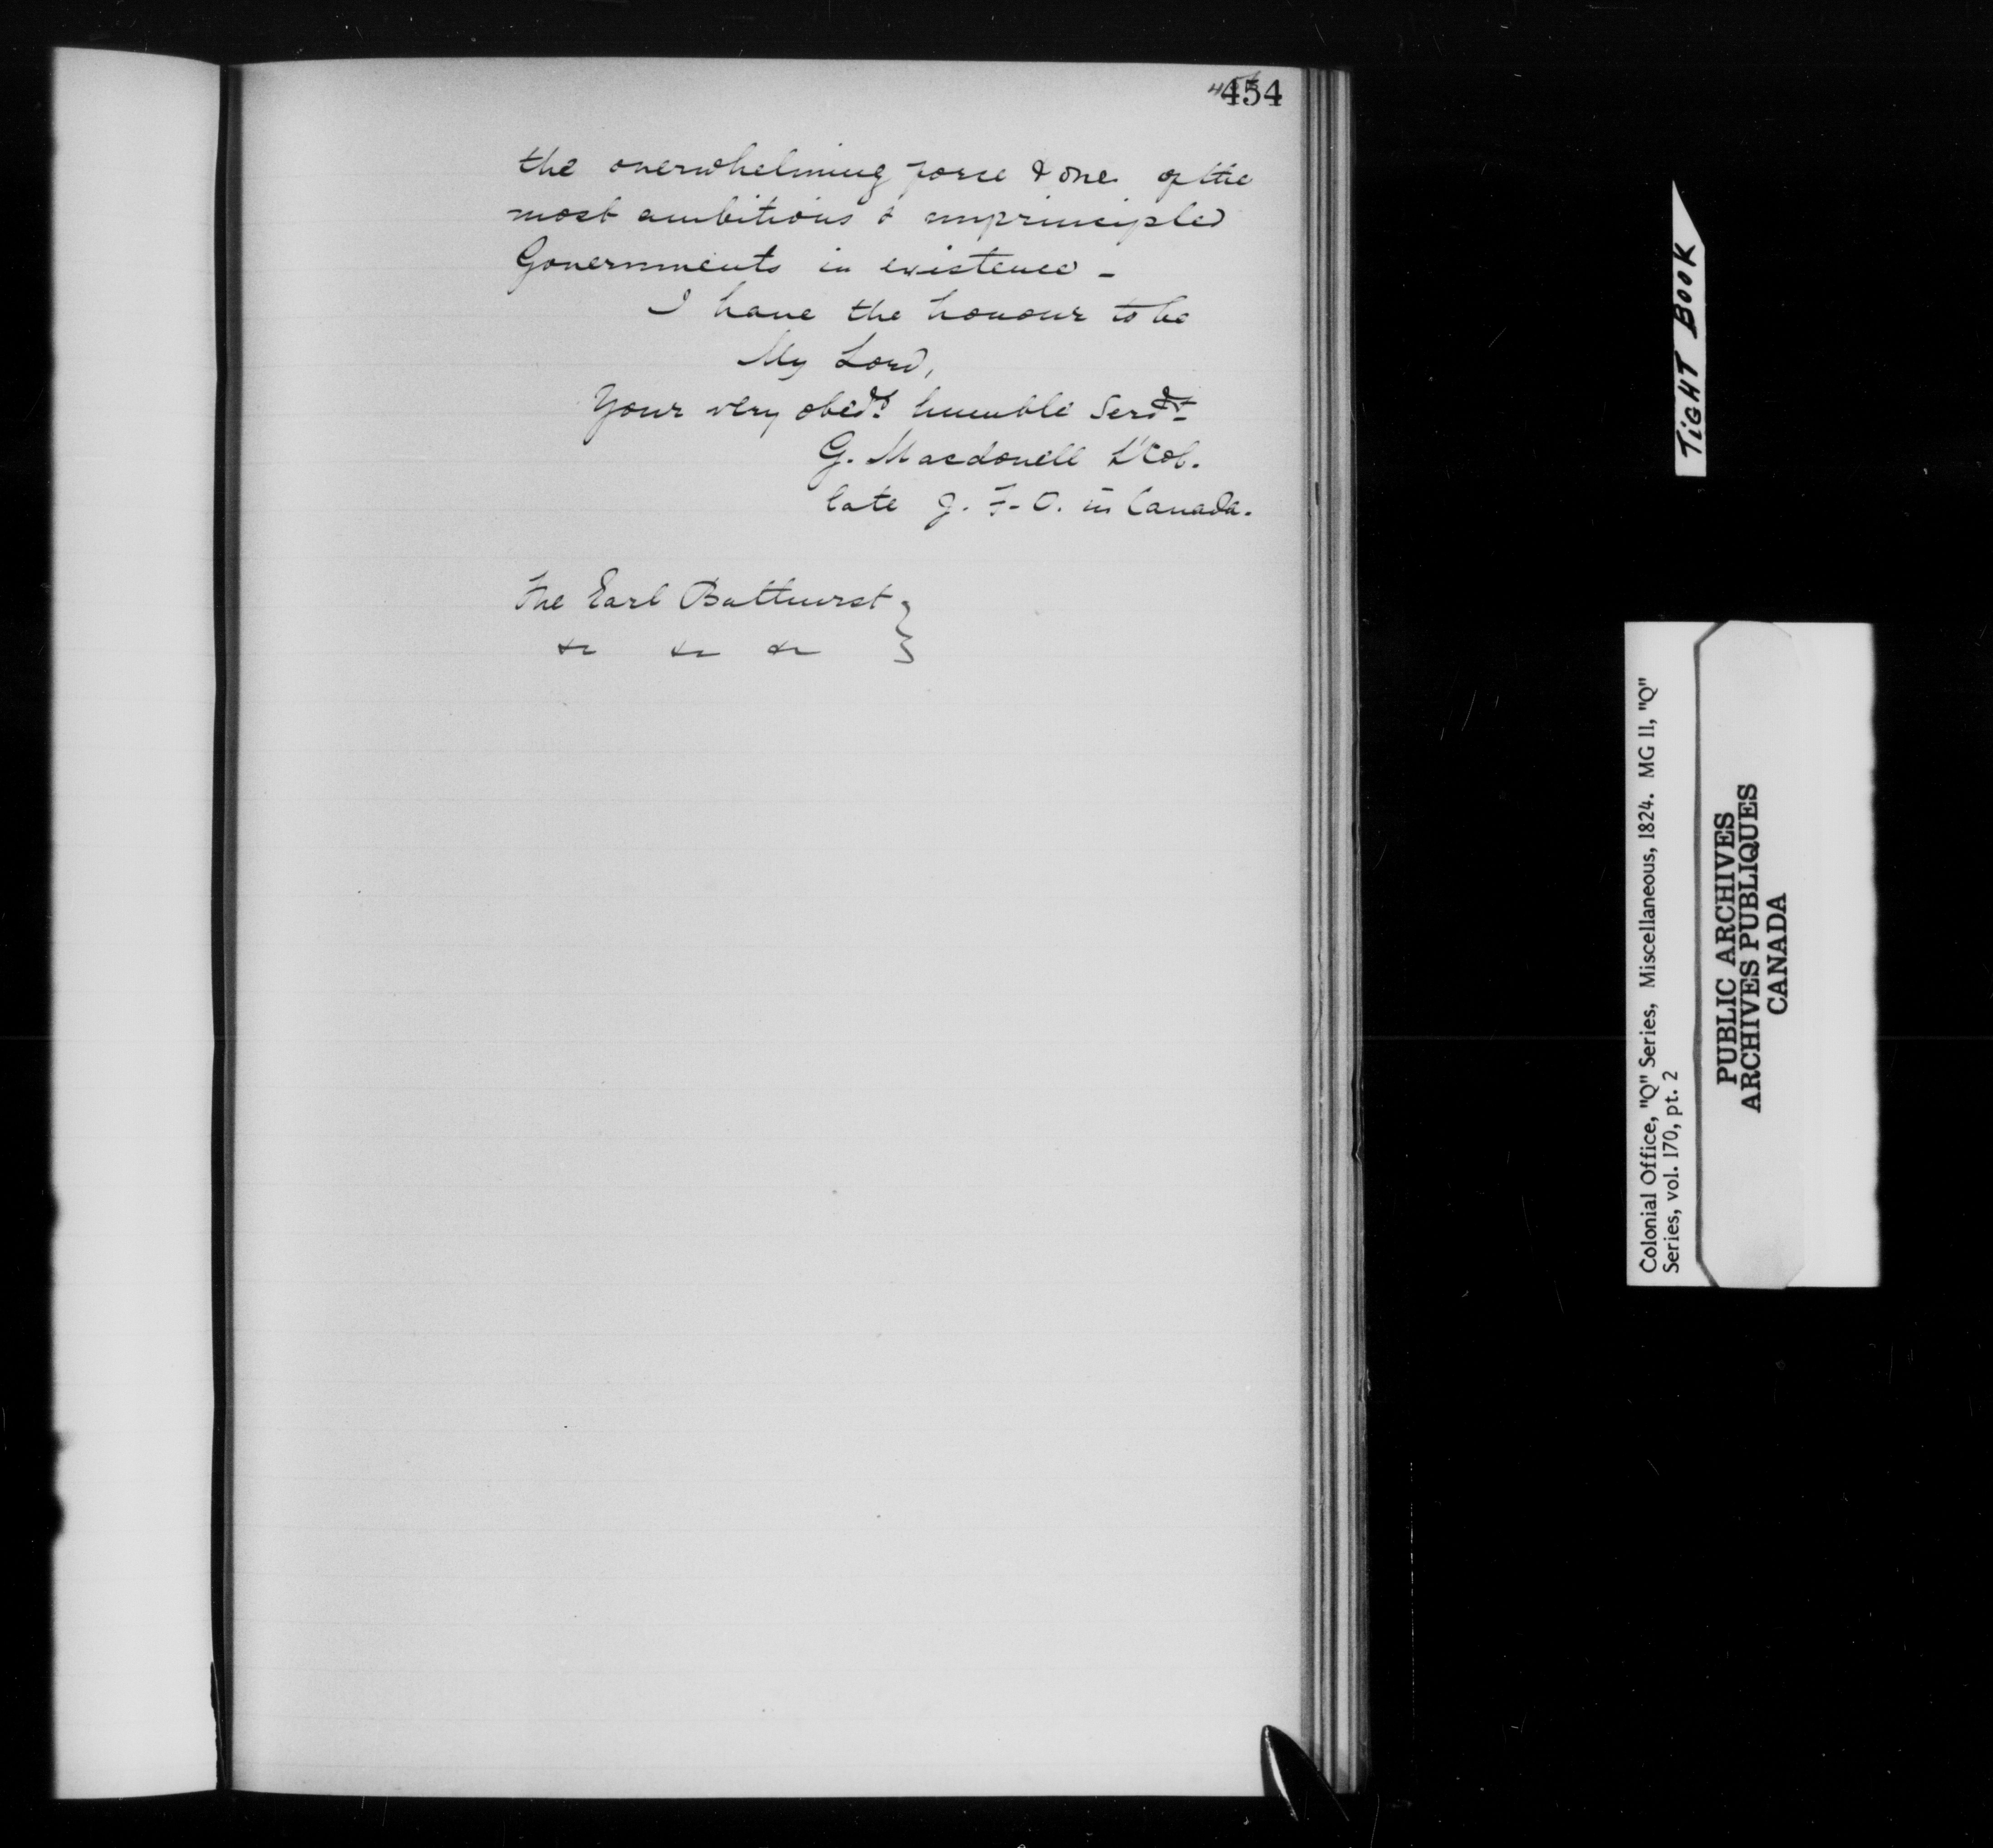 454
the overwhelming force & one of the
most ambitious & unprincipled
Governments in existence -
I have the honour to be
My Lord,
Your very obedt humble Servt
G. Macdonell Lt Col.
late J. F. O. in Canada.
The Earl Bathurst
&c &c &c
TIGHT BOOK
Colonial Office, "Q" Series, Miscellaneous, 1824. MG 11, "Q"
Series, vol. 170, pt. 2
PUBLIC ARCHIVES
ARCHIVES PUBLIQUES
CANADA